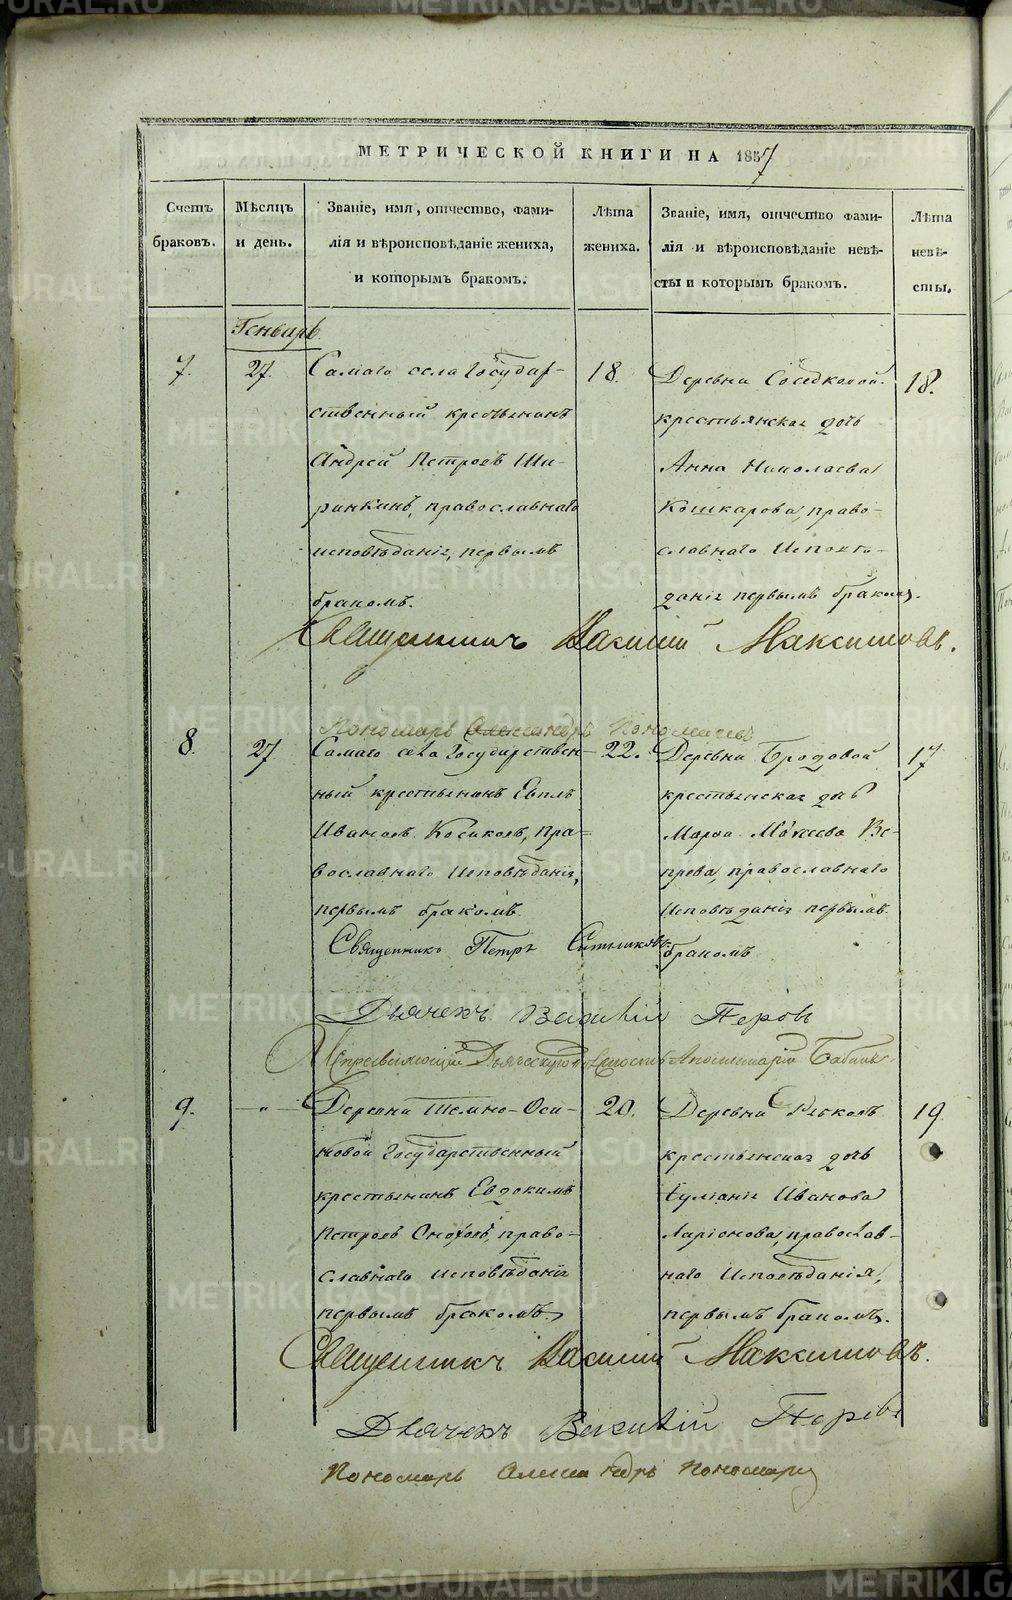 МЕТРИЧЕСКОЙ КНИГИ НА 1857
Счетъ браковъ.
Мѣсяцъ и день.
Званіе, имя, отчество, фами-
лія и вѣроисповѣданіе жениха,
и которымъ бракомъ.
Лѣта жениха.
Званіе, имя, отчество фами-
лія и вѣроисповѣданіе невѣ-
сты и которымъ бракомъ.
Лѣта невѣ-
сты.
Генварь
7.
27.
Самаго села Государ-
ственный крестьянинъ
Андрей Петровъ Ши-
ринкинъ, православнаго
исповѣданія, первымъ
бракомъ.
18.
Деревни Сосѣдковой
крестьянская дочь
Анна Николаева
Кошкарова, право-
славнаго Исповѣ-
данія первымъ бракомъ.
18.
Священникъ Василий Максимовъ.
Пономарь Александръ
8.
27
Самаго села Государствен-
ный крестьянинъ Евплъ
Ивановъ Косиковъ, пра-
вославнаго Исповѣданія,
первымъ бракомъ.
22.
Деревни Бродовой
крестьянская дочь
Марѳа Моисеева Ве-
прева, православнаго
Исповѣданія первымъ
бракомъ
17
Священникъ Петръ
Дьячекъ Василій Перовъ
9.
— „ —
Деревни Темно-Оси-
новой Государственный
крестьянинъ Евдокимъ
Петровъ Сноховъ, право-
славнаго Исповѣданія
первымъ бракомъ
20.
Деревни
крестьянская дочь
Іуліанія Иванова
Ларіонова, православ-
наго Исповѣданія,
первымъ бракомъ.
19.
Священникъ Василий Максимовъ.
Дьячекъ Василій Перовъ
Пономарь Александръ
METRIKI.GASO-URAL.RU